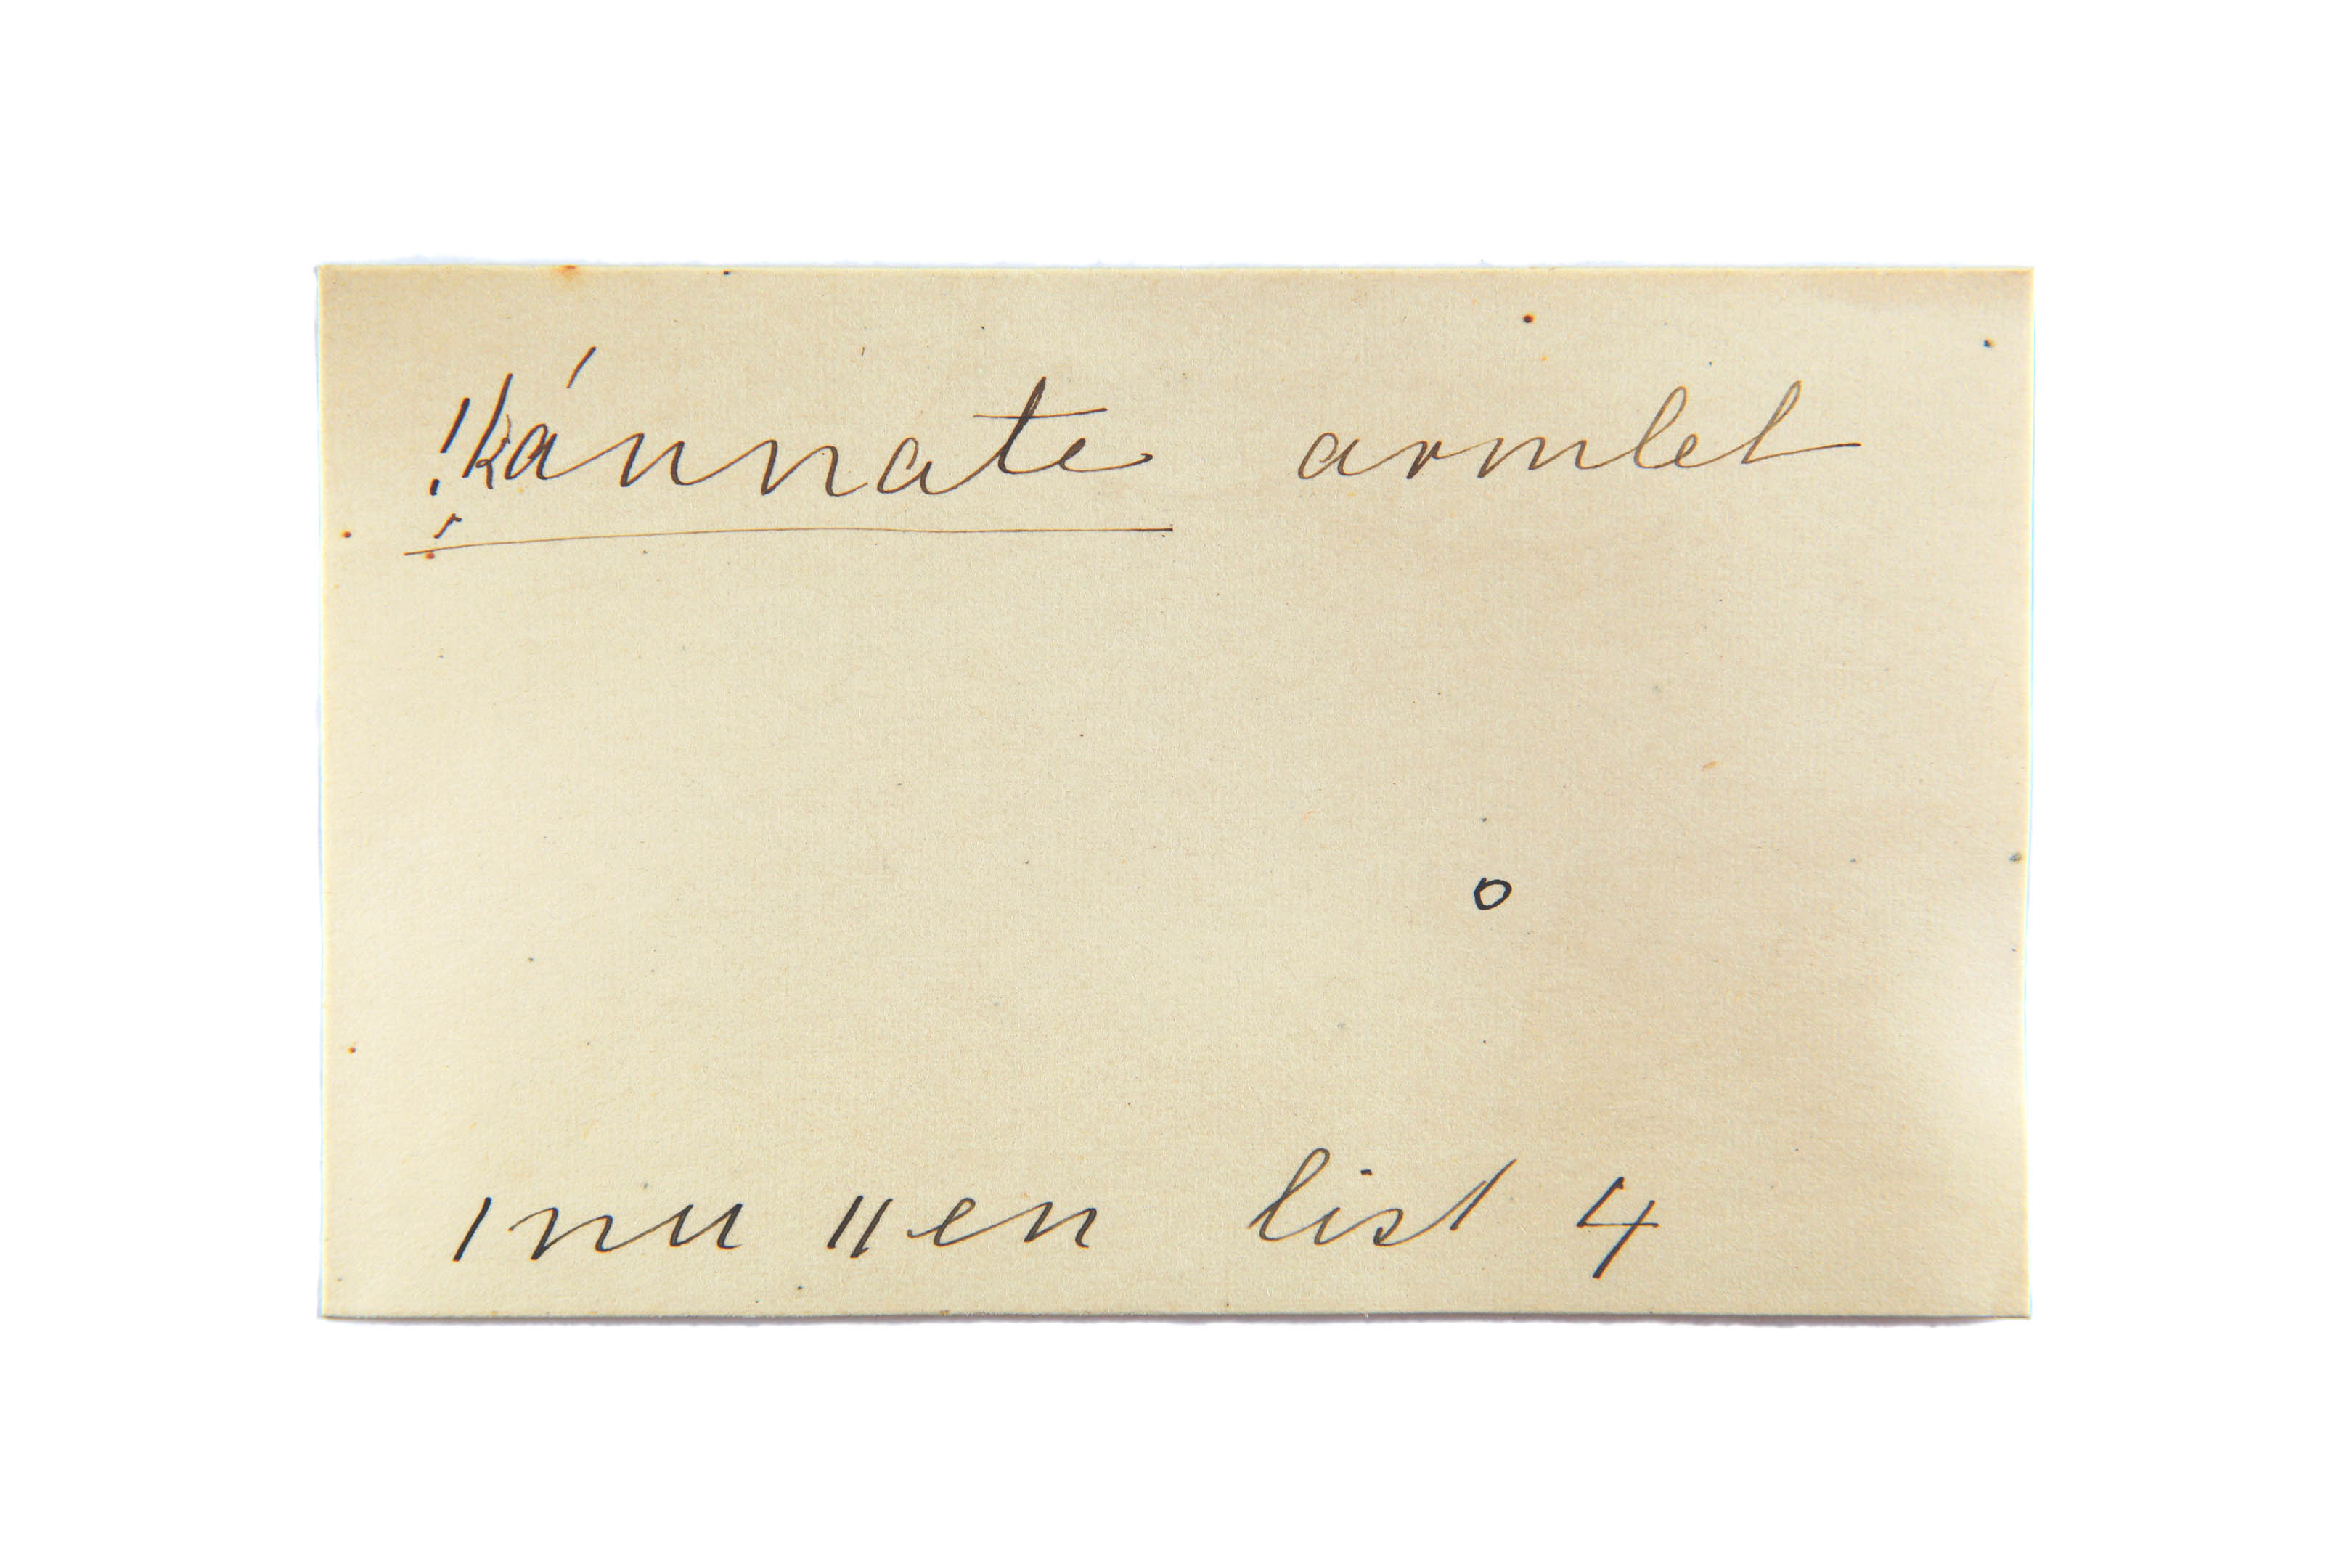 !kánnate armlet
o
ǀnu ǁen list 4